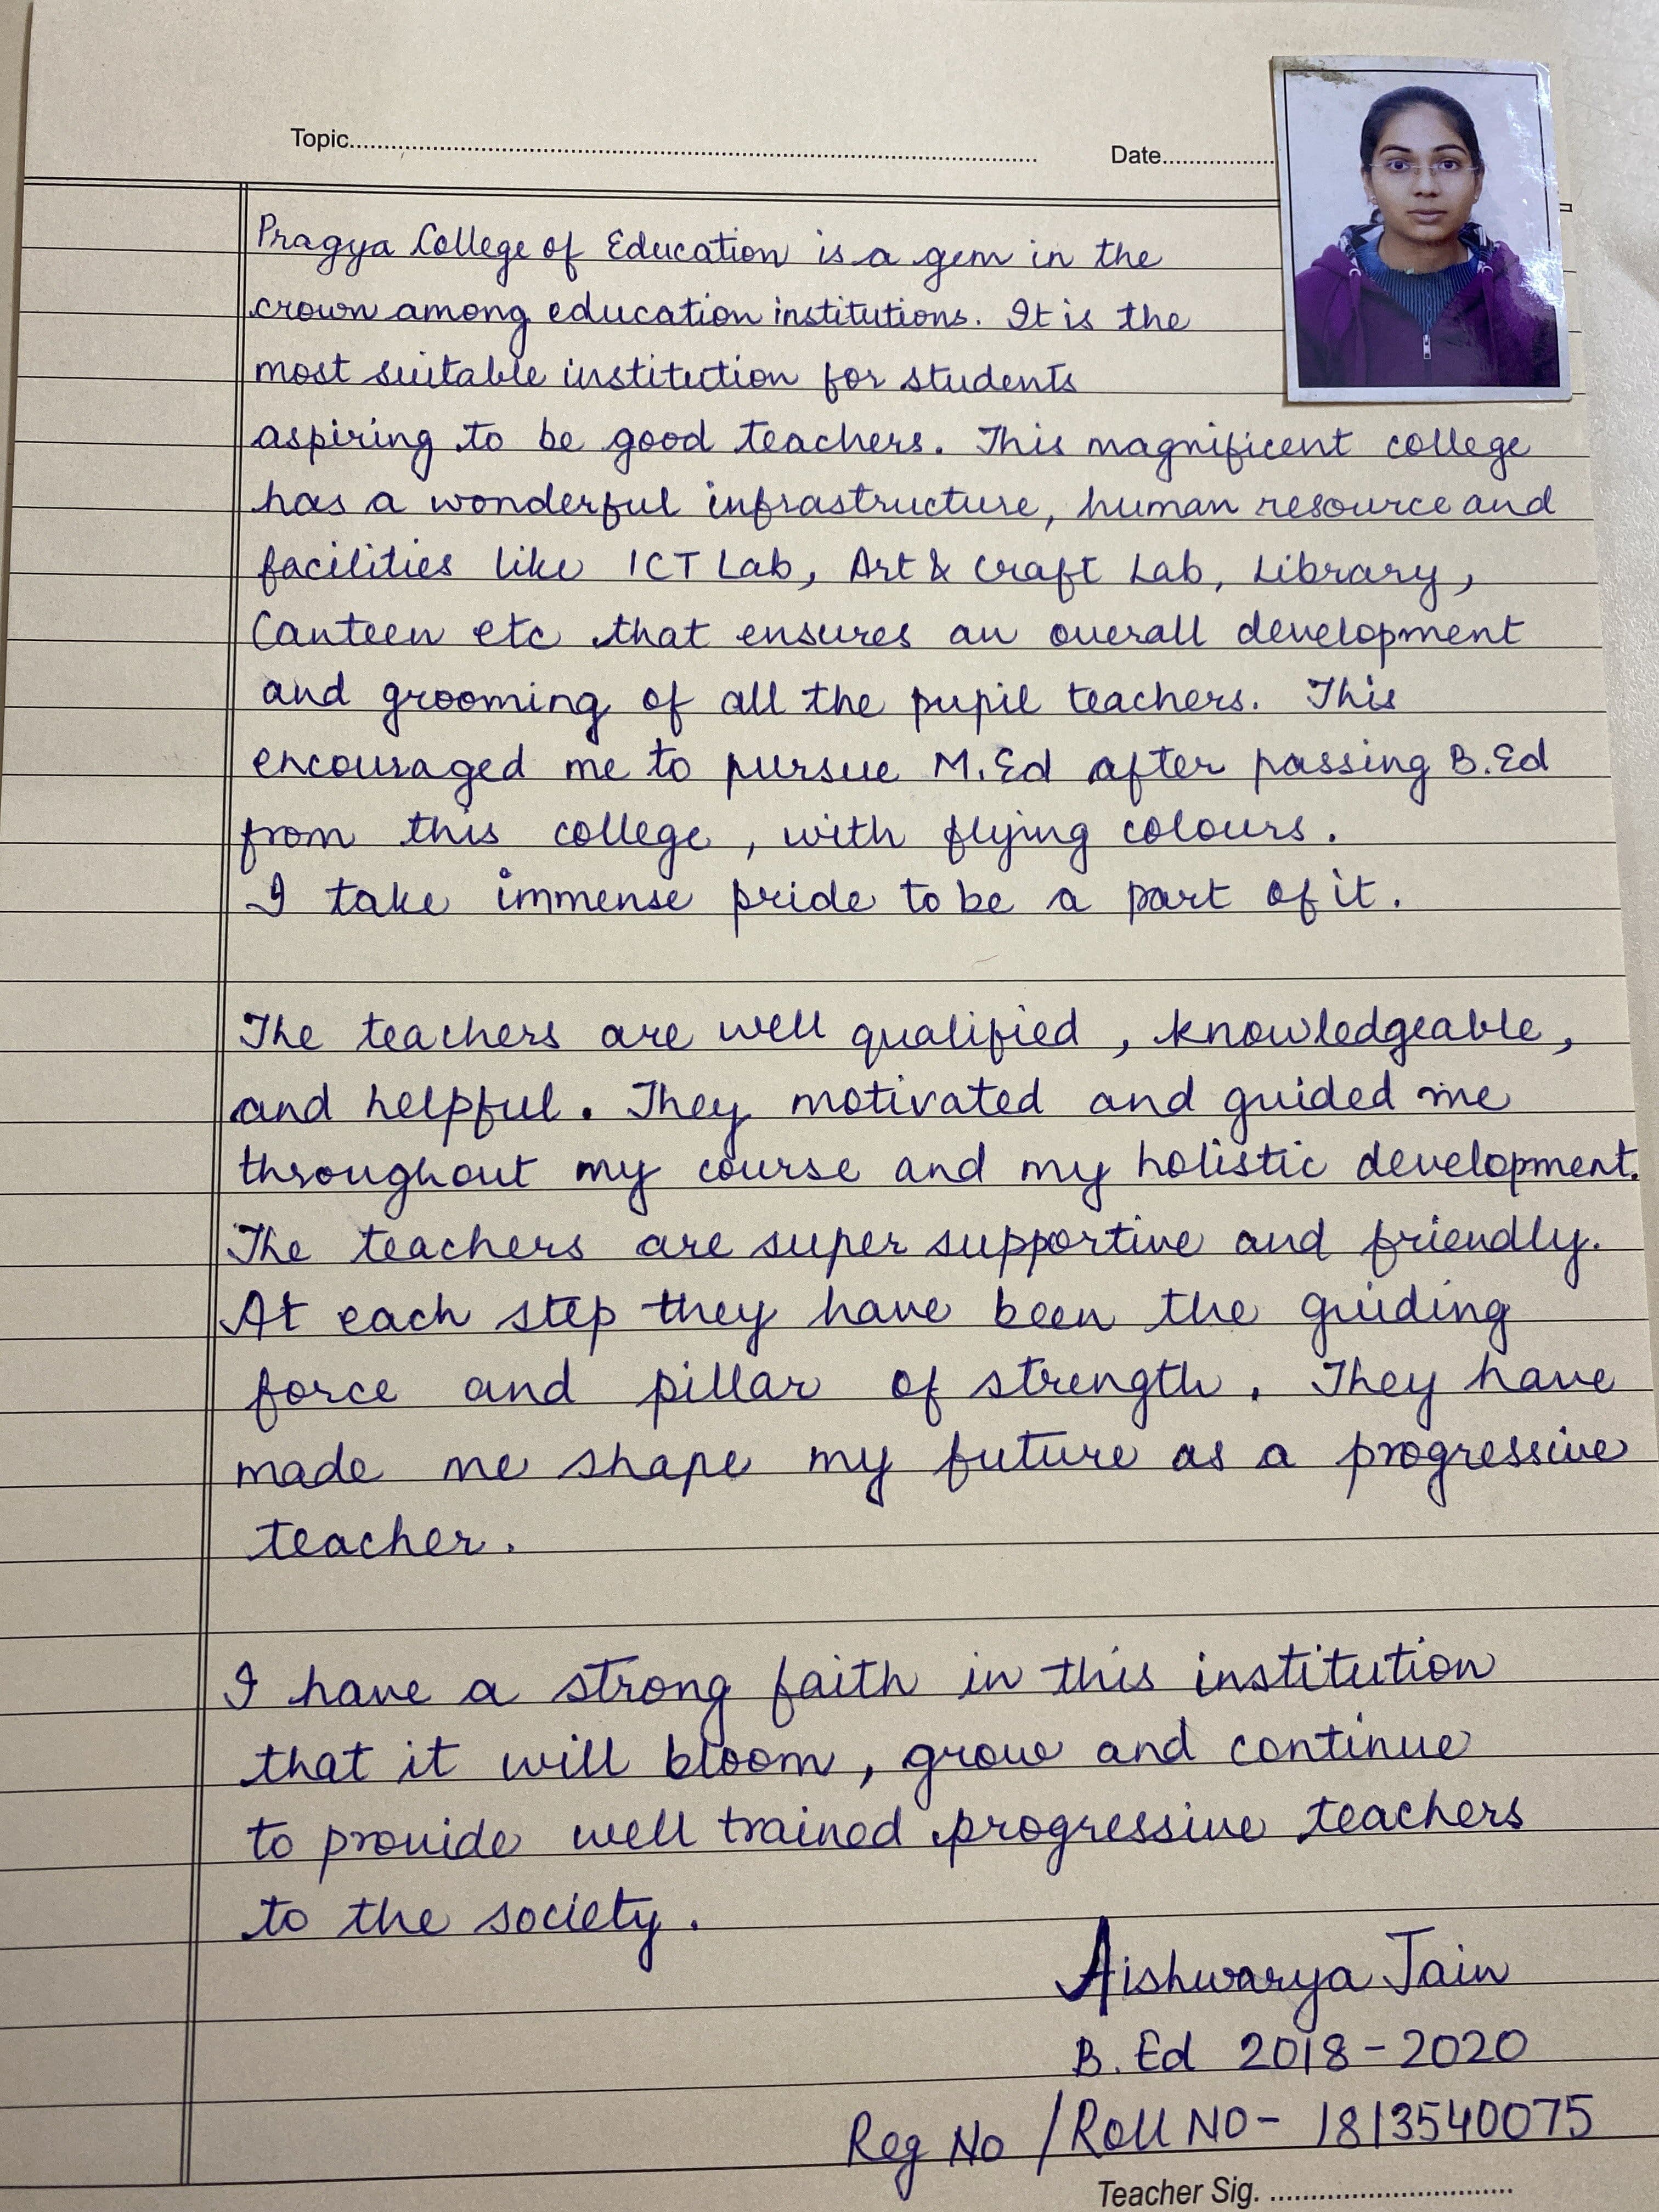 Topic.......... Date..........
Pragya College of Education is a gem in the
crown among education institutions. It is the
most suitable institution for students
aspiring to be good teachers. This magnificent college
has a wonderful infrastructure, human resource and
facilities like ICT Lab, Art & Craft Lab, Library,
Canteen etc that ensures an overall development
and grooming of all the pupil teachers. This
encouraged me to pursue M.Ed after passing B.Ed
from this college, with flying colours.
I take immense pride to be a part of it.
The teachers are well qualified, knowledgeable,
and helpful. They motivated and guided me
throughout my course and my holistic development.
The teachers are super supportive and friendly.
At each step they have been the guiding
force and pillar of strength. They have
made me shape my future as a progressive
teacher.
I have a strong faith in this institution
that it will bloom, grow and continue
to provide well trained progressive teachers
to the society.
Aishwarya Jain
B.Ed 2018-2020
Reg No / Roll NO- 1813540075
Teacher Sig. ..........